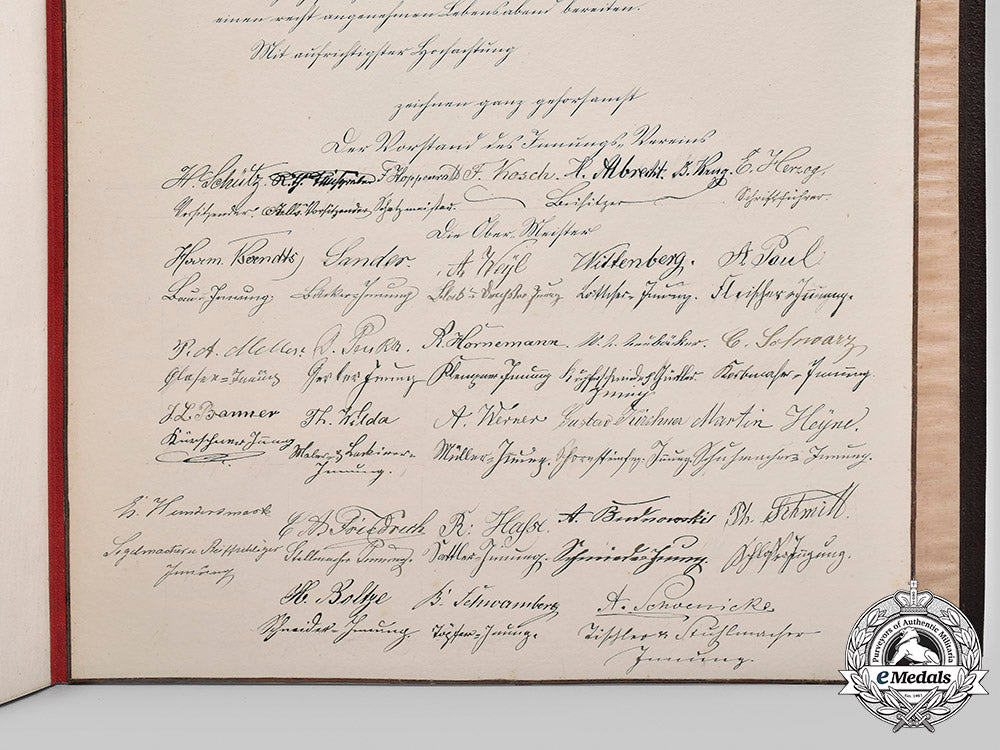 einen recht angenehmen Lebensabend bereiten.
Mit aufrichtigster Hochachtung
zeichnen ganz gehorsamst
Der Vorstand des Innungs-Vereins
H. Schütz. F. Hoppenrath F. Kosch. A. Albrecht. B. Krug. E. Herzog.
Vorsitzender. Stellv. Vorsitzender Schatzmeister. Beisitzer Schriftführer.
Die Ober-Meister
Herm. Berndts, Sander. A. Weyl Wittenberg. A. Paul
Bau-Innung. Bäcker-Innung Innung Böttcher-Innung. Fleischer-Innung.
P. A. Moller. J. Penka. R. Hornemann. C. Schwarz
Glaser-Innung Gerber Innung Klempner Innung Korbmacher-Innung.
Innung
J. L. Banner Th. Wilda A. Werner Gustav Kirschner Martin Heyne.
Kürschner Innung Maler- & Lackirer- Müller-Innung. Schornsteinfeger Innung Schuhmacher-Innung.
Innung.
C. A. Friedrich R. Hasse A. Budnowski Th. Schmitt.
Segelmacher & Reifschläger Stellmacher Innung. Sattler-Innung. Schmiede-Innung. Schlosser Innung.
Innung
H. Boltze B. Schwamberg A. Schoenicke
Schneider-Innung. Töpfer-Innung. Tischler & Stuhlmacher
Innung.
Purveyors of Authentic Militaria
eMedals